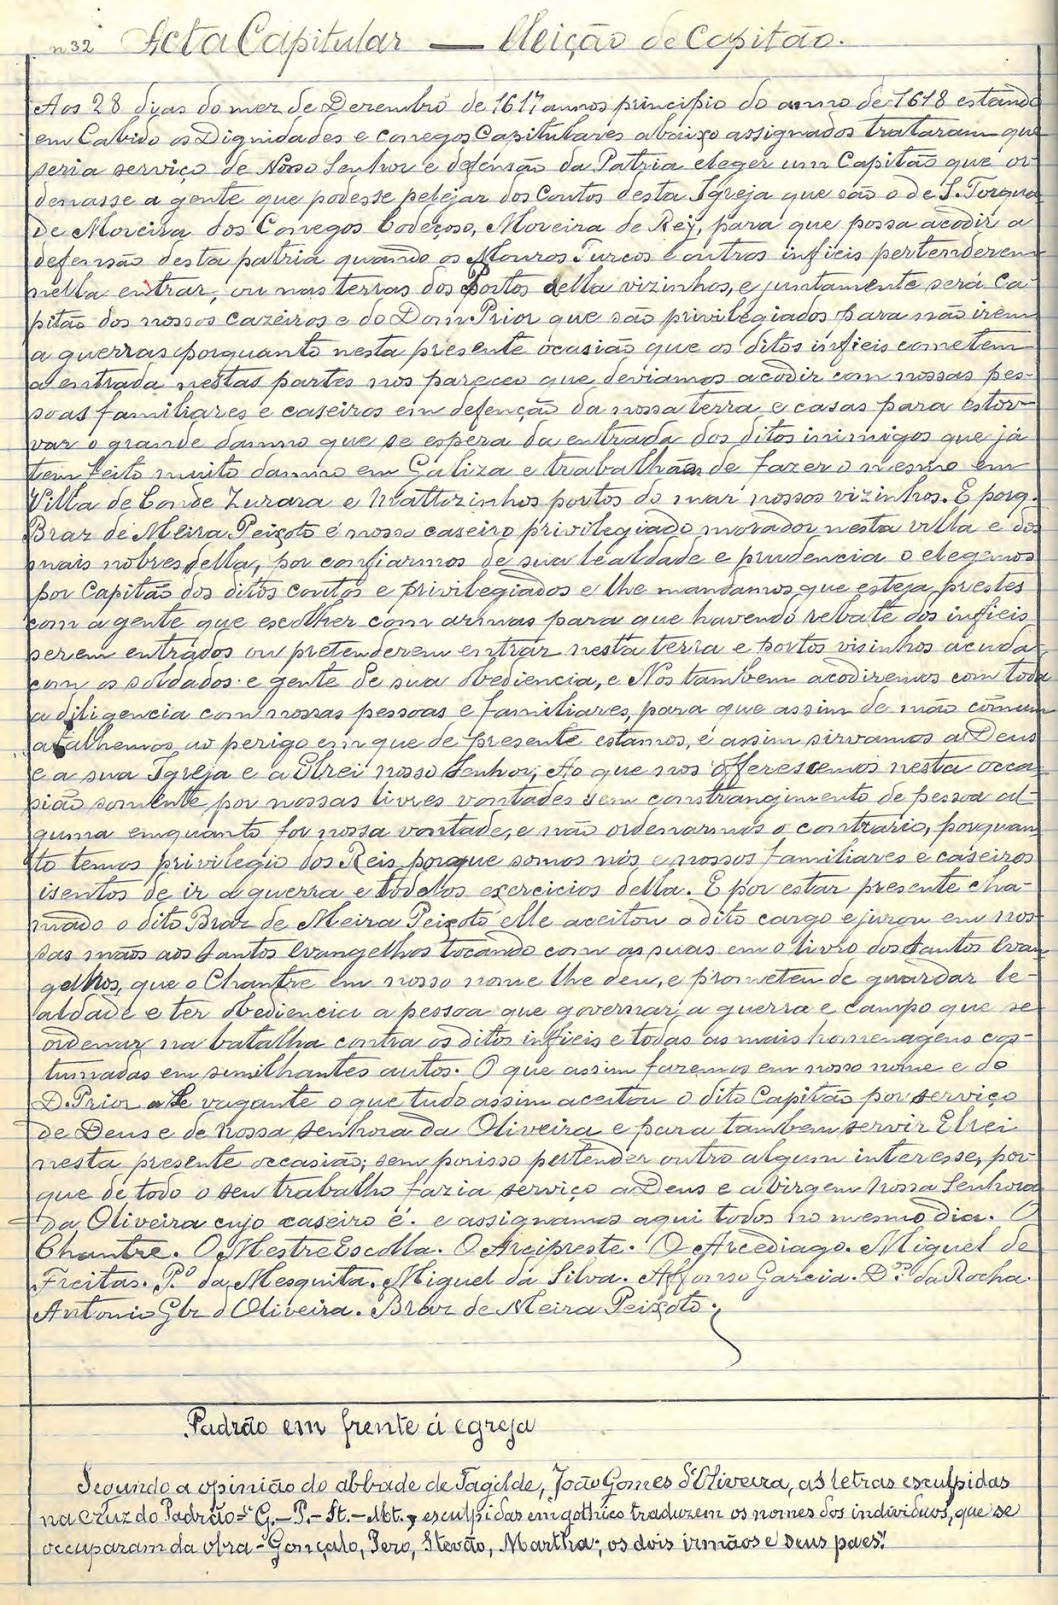 nº 32 Acta Capitular — Eleição de Capitão.
Aos 28 dias do mez de Dezembro de 1617 annos principio do anno de 1618 estando
em Cabido os Dignidades e conegos Capitulares abaixo assignados trataram que
seria serviço de Nosso Senhor e defensão da Patria eleger um Capitão que or-
denasse a gente que podesse pelejar dos Coutos desta Igreja que são o de S. Torquato
de Moreira dos Conegos Codeçoso, Moreira de Rey, para que possa acodir a
defensão desta patria quando os Mouros Turcos e outros infieis pertenderem
nella entrar, ou nas terras dos portos della vizinhos, e juntamente será Ca-
pitão dos nossos cazeiros e do Dom Prior que são privilegiados para não irem
a guerras porquanto nesta presente ocasião que os ditos infieis cometem
a entrada nestas partes nos pareceo que deviamos acodir com nossas pes-
soas familiares e caseiros em defenção da nossa terra e casas para estor-
var o grande damno que se espera da entrada dos ditos inimigos que já
tem feito muito damno em Galiza e trabalhão de fazer o mesmo em
Villa de Conde Zurara e Mattozinhos portos do mar nossos vizinhos. E porq.
Braz de Meira Peixoto é nosso caseiro privilegiado morador nesta villa e dos
mais nobres della, por confiarmos de sua lealdade e prudencia o elegemos
por Capitão dos ditos coutos e privilegiados e lhe mandamos que esteja prestes
com a gente que escolher com armas para que havendo rebate dos infieis
serem entrados ou pretenderem entrar nesta terra e portos visinhos acuda
com os soldados e gente de sua obediencia, e Nós tambem acodiremos com toda
a diligencia com nossas pessoas e familiares, para que assim de mão cómum
atalhemos ao perigo em que de presente estamos, e assim sirvamos a Deus
e a sua Igreja e a Elrei nosso Senhor, Ao que nos offerescemos nesta occa-
sião somente por nossas livres vontades sem constrangimento de pessoa al-
guma emquanto for nossa vontade, e não ordenarmos o contrario, porquan-
to temos privilegio dos Reis porque somos nós e nossos familiares e caseiros
isentos de ir a guerra e todolos exercicios della. E por estar presente cha-
mado o dito Braz de Meira Peixoto elle aceitou o dito cargo e jurou em nos-
sas mãos aos Santos Evangelhos tocando com as suas em o livro dos Santos Evan-
gelhos, que o Chantre em nosso nome lhe deu, e prometeu de guardar le-
aldade e ter obediencia a pessoa que governar a guerra e campo que se
ordenar na batalha contra os ditos infieis e todas as mais homenagens cos-
tumadas em semilhantes autos. O que assim fazemos em nosso nome e do
D. Prior a Se vagante o que tudo assim aceitou o dito Capitão por serviço
de Deus e de Nossa Senhora da Oliveira e para tambem servir Elrei
nesta presente occasião, sem porisso pertender outro algum interesse, por-
que de todo o seu trabalho fazia serviço a Deus e a Virgem Nossa Senhora
da Oliveira cujo caseiro é. e assignamos aqui todos no mesmo dia. O
Chantre. O Mestre Escolla. O Arcipreste. O Arcediago. Miguel de
Freitas. P.º da Mesquita. Miguel da Silva. Affonso Garcia. D.ºs da Rocha.
Antonio Glz d'Oliveira. Braz de Meira Peixoto.
Padrão em frente á egreja
Segundo a opinião do abbade de Tagilde, João Gomes d'Oliveira, as letras esculpidas
na cruz do Padrão = G. – P. – St. – Mt., esculpidas em gothico traduzem os nomes dos individuos, que se
occuparam da obra – Gonçalo, Pero, Stevão, Martha; os dois irmãos e seus paes.